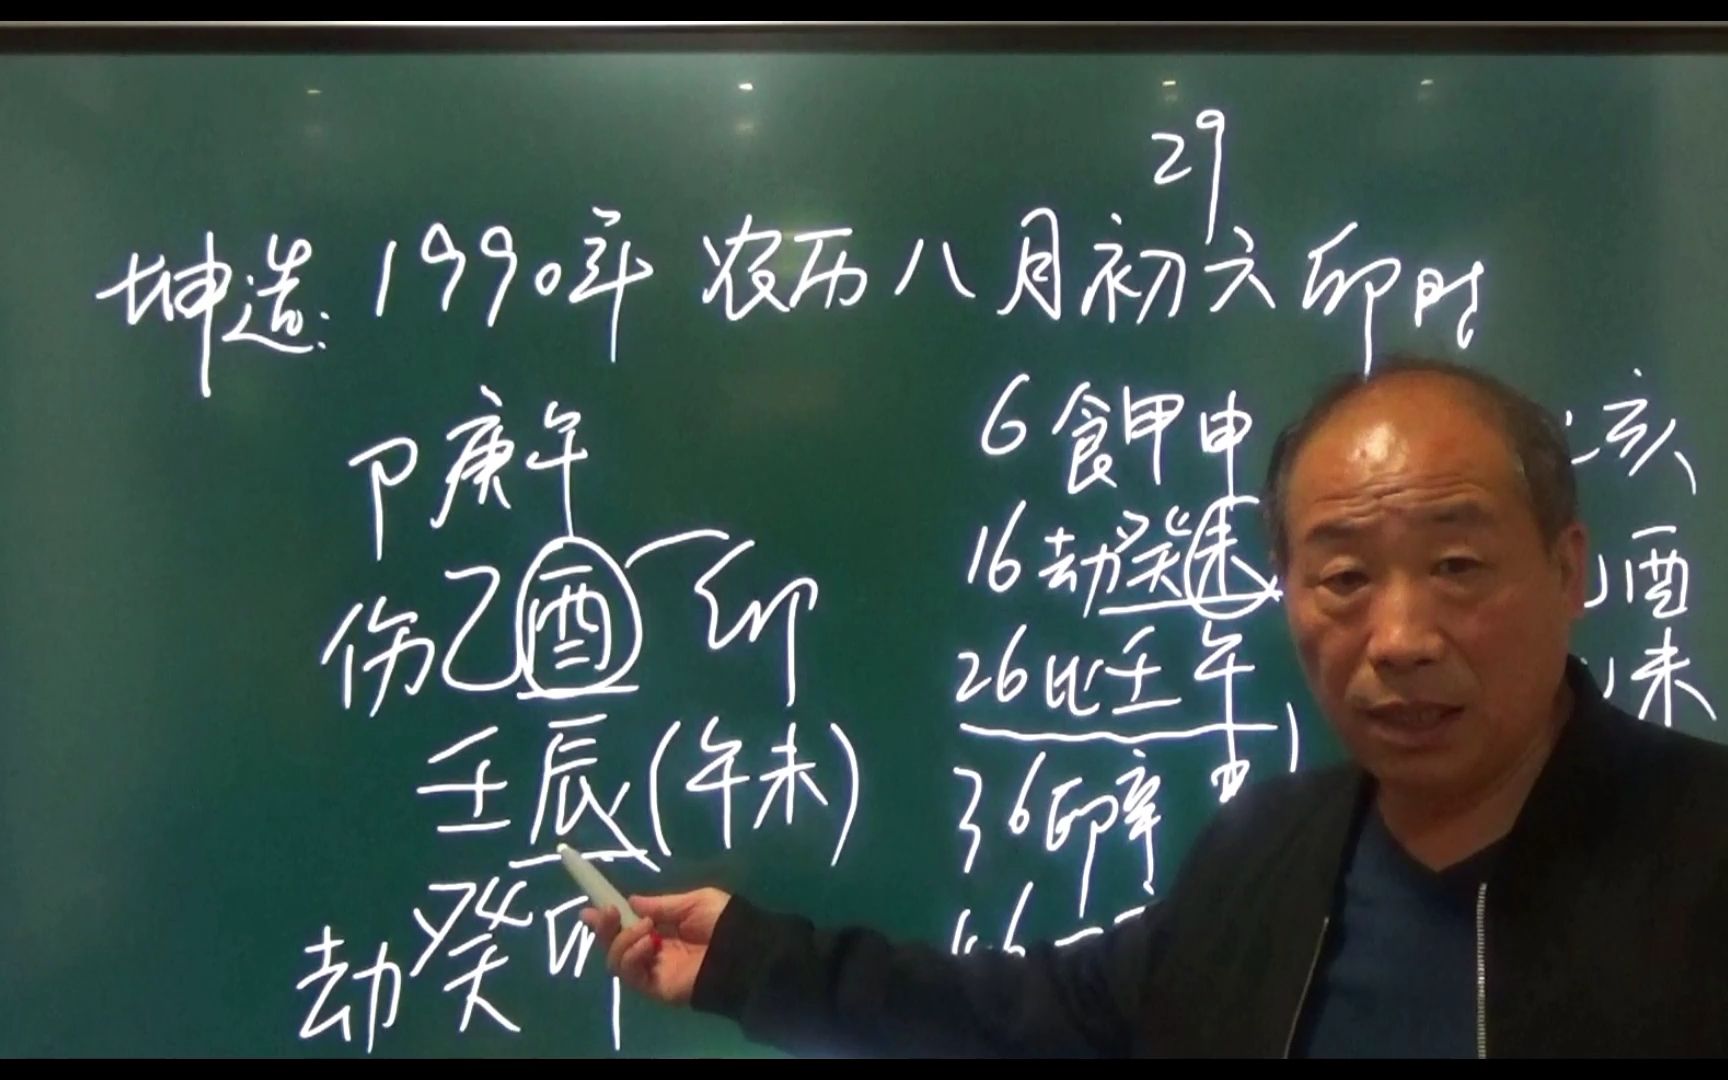 29
坤造:1990年 农历八月初六卯时
卩庚午
伤乙酉 印
壬辰(午未)
劫癸卯
6食甲申
16劫癸未
26比壬午
36印辛
46
亥
酉
未